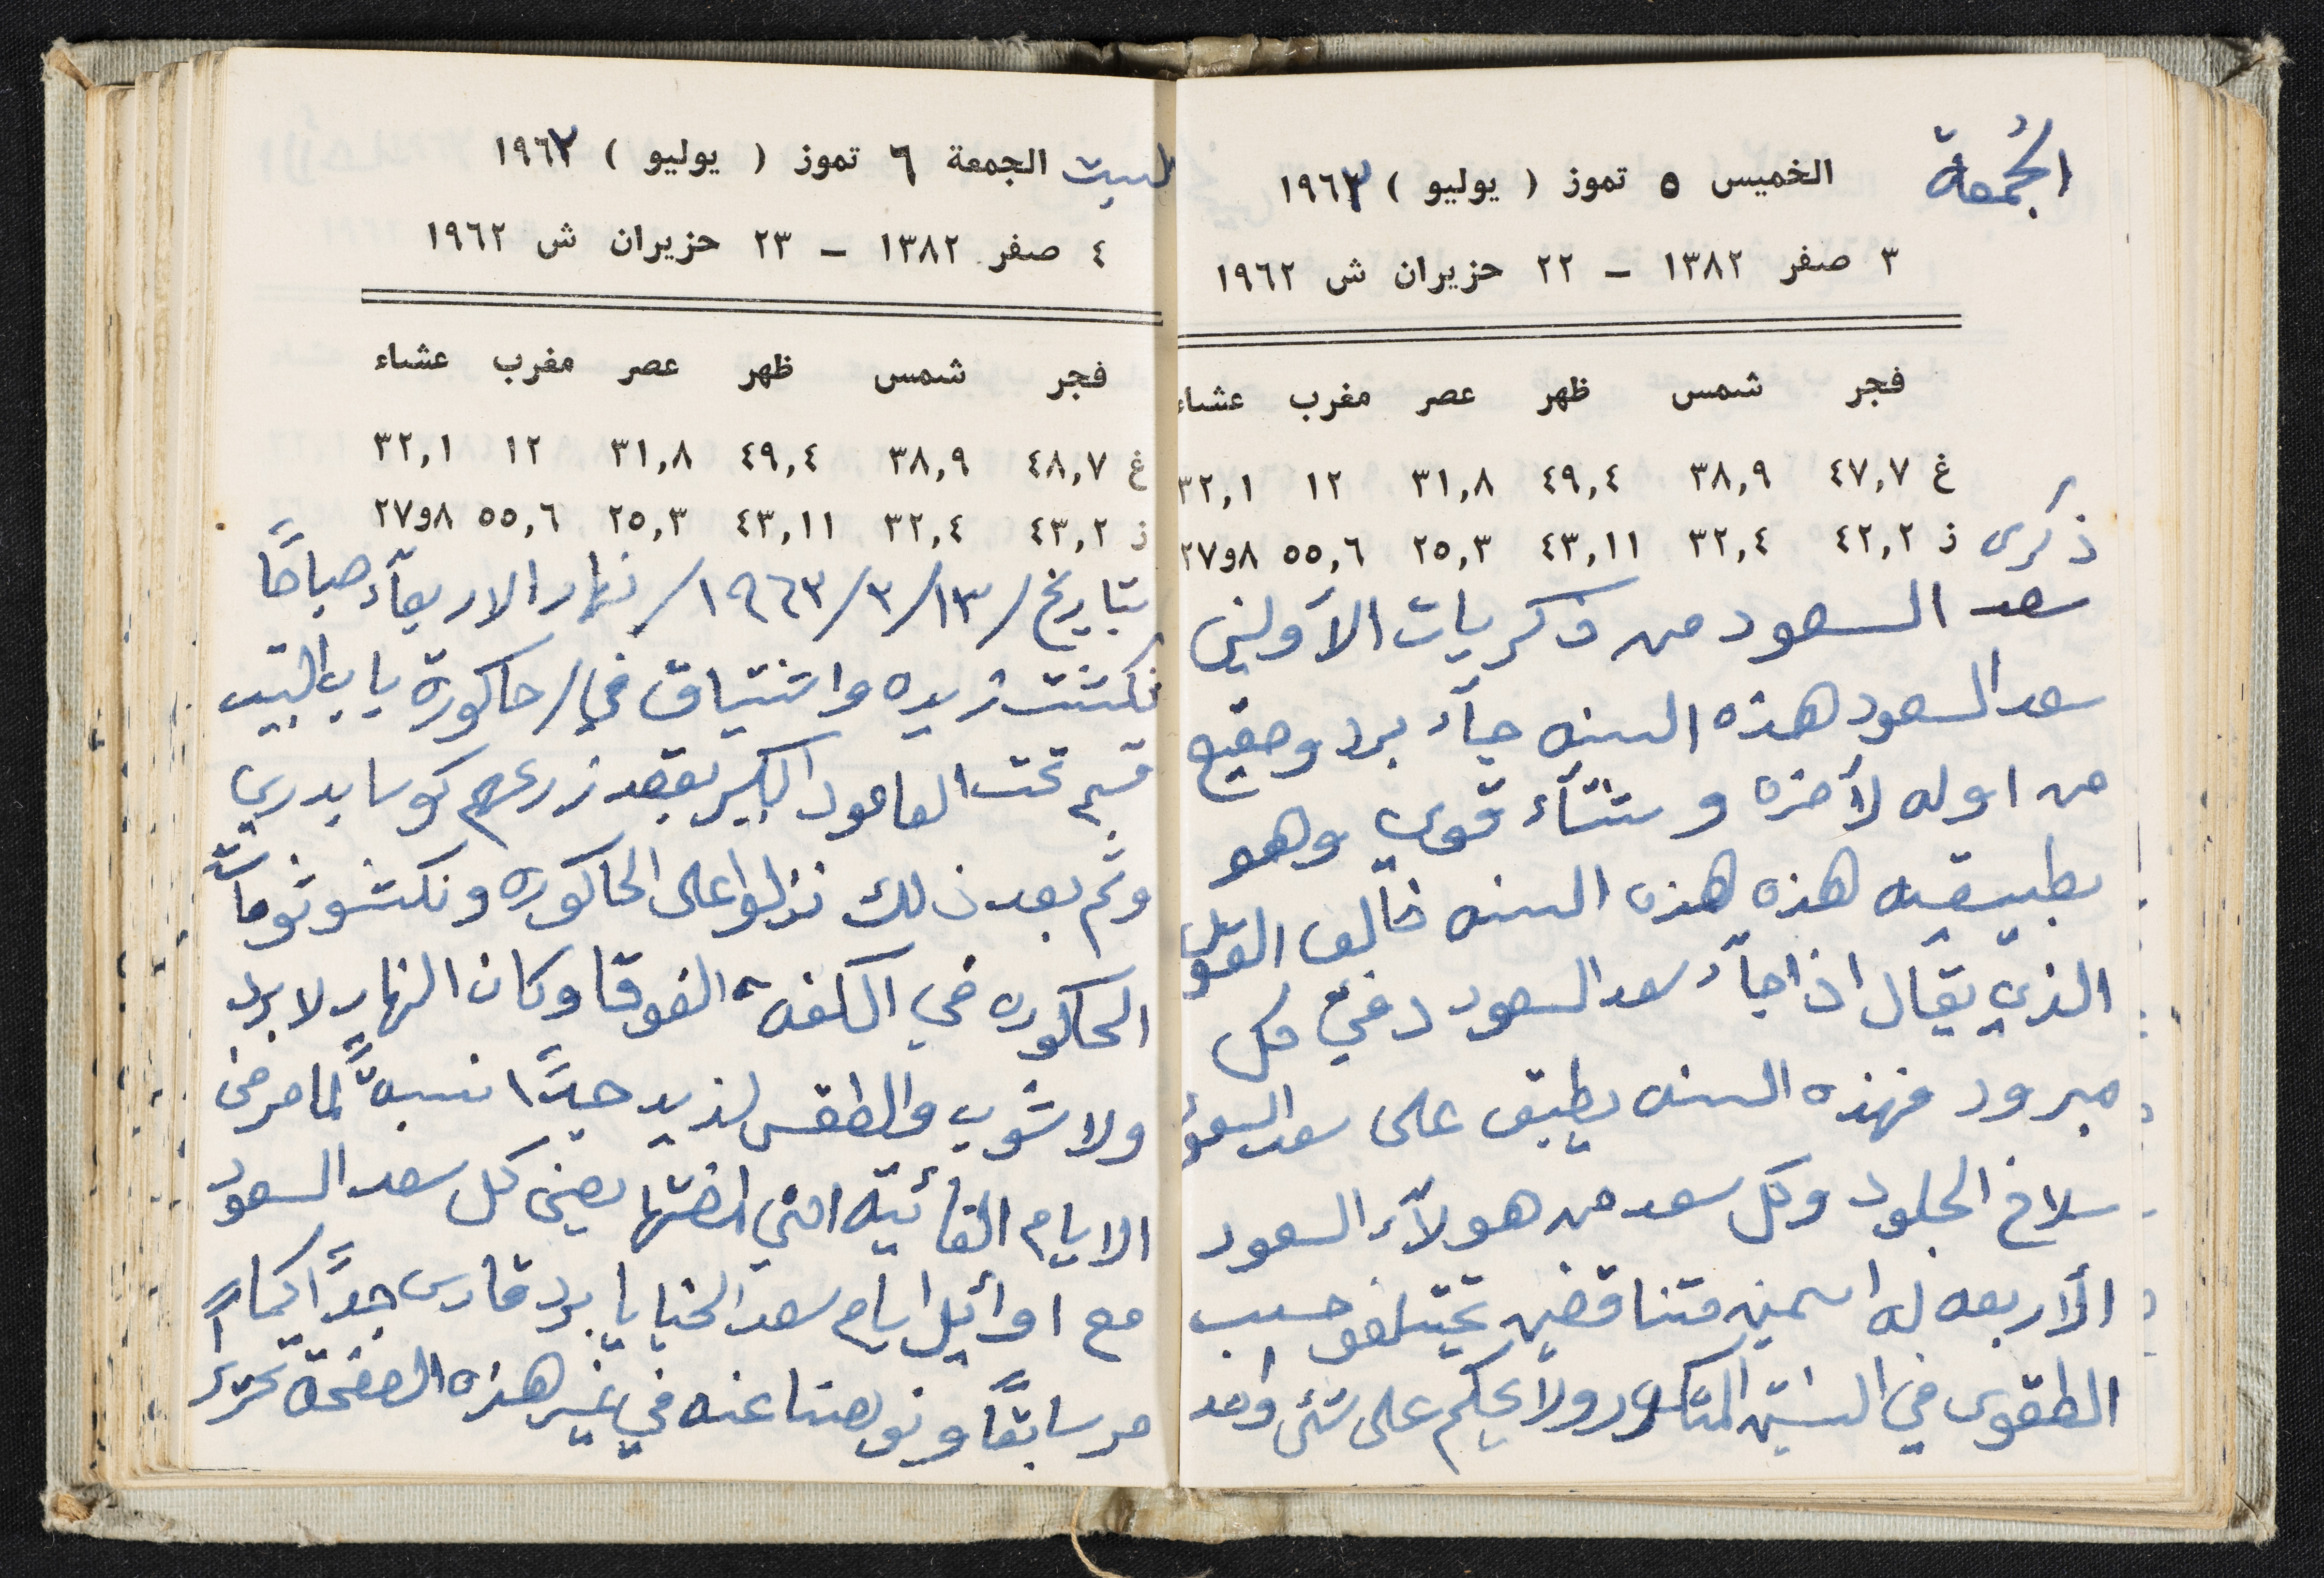 الجُمعة
الخميس ٥ تموز ( يوليو ) ١٩٦٣
٣ صفر ١٣٨٢ – ٢٢ حزيران ش ١٩٦٢
فجر شمس ظهر عصر مغرب عشاء
غ ٤٧,٧ ٣٨,٩ ٤٩,٤ ٣١,٨ ١٢ ٣٢,١
ذكرى ز ٤٢,٢ ٣٢,٤ ٤٣,١١ ٢٥,٣ ٥٥,٦ ٨و٢٧
سعد السعود من ذكريات الاولين
سعد السعود هذه السنه جآء برد وصقيع
من اوله لآخره وشتآء قوي وهو
بطبيقيه هذه هذه السنه خالف القول
الذي يقال اذا جآء سعد السعود دفي كل
مبرود فهذه السنه يطبق على سعد السعود
سلاخ الجلود وكل سعد من هولآء السعود
الأربعه له اسمين متناقضين تختلفو حسب
الطقوس في السنين المتكرر ولا يحكم على شئ واحد
السبت الجمعة ٦ تموز ( يوليو ) ١٩٦٢
٤ صفر ١٣٨٢ – ٢٣ حزيران ش ١٩٦٢
فجر شمس ظهر عصر مغرب عشاء
غ ٤٨,٧ ٣٨,٩ ٤٩,٤ ٣١,٨ ١٢ ٣٢,١
ز ٤٣,٢ ٣٢,٤ ٤٣,١١ ٢٥,٣ ٥٥,٦ ٨و٢٧
بتاريخ /١٣/٣/١٩٦٣/ نهار الاربعآء صباحًا
نكشت زيده واشتياق في/ حاكورة باب البيت
قسم تحت العامود الكبير بقصد زرعهم كوسا بدري
وثم بعد ذلك نزلوا على الحاكوره ونكشو ثومات
الحاكوره في الكفة الفوقا وكان النهار لا برد
ولا شوب والطقس لذيذ جدًا نسبةً لما مر من
الايام الفائيته التي امضتها يعني كل سعد السعود
مع اوائل ايام سعد الخبايا برد قارس جدًا كما
مر سابقًا ونوهنا عنه في غير هذه الصفحة